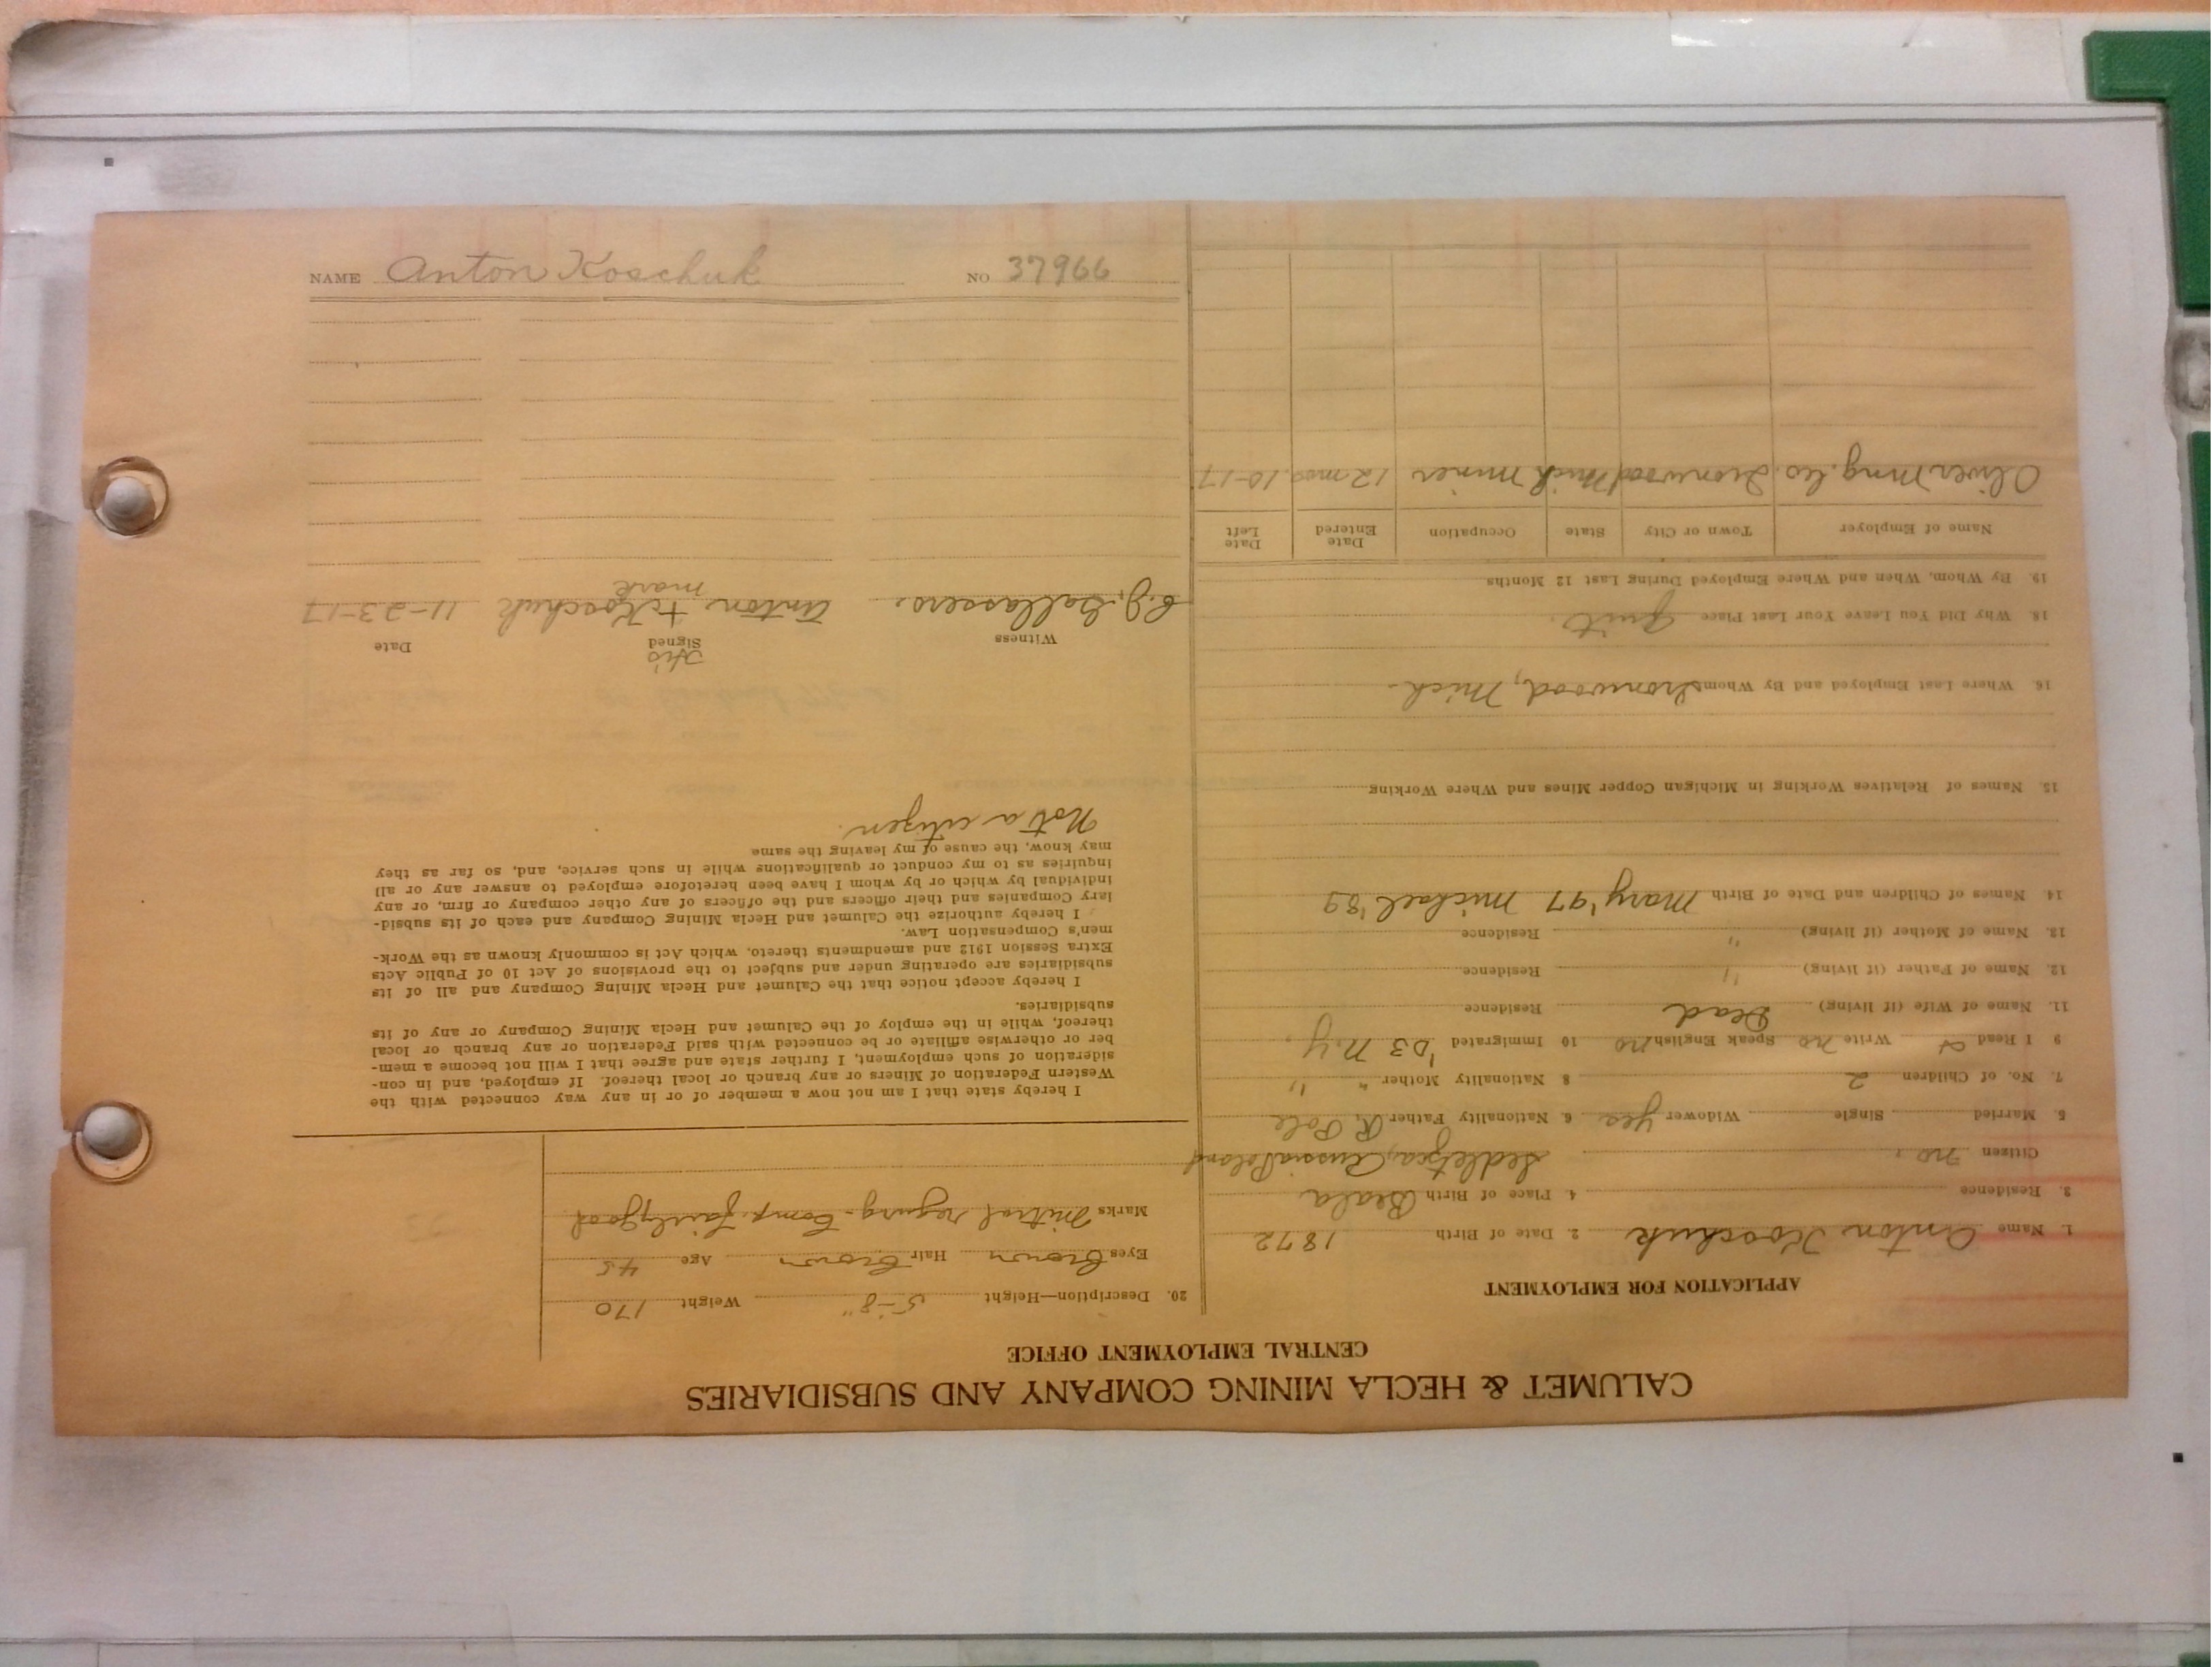 CALUMET & HECLA MINING COMPANY AND SUBSIDIARIES
CENTRAL EMPLOYMENT OFFICE
APPLICATION FOR EMPLOYMENT
1. Name Anton Koschuk 2. Date of Birth 1872
3. Residence 4. Place of Birth Beala
Citizen no. Sedletzca, Russia Poland
5. Married Single Widower yes 6. Nationality Father R. Pole
7. No. of Children 2 8 Nationality Mother " "
9 I Read Write no Speak English no 10 Immigrated '03 N.Y.
11. Name of Wife (if living) Dead Residence
12. Name of Father (if living) " Residence
13. Name of Mother (if living) " Residence
14. Names of Children and Date of Birth Mary '97 Michael '89
15. Names of Relatives Working in Michigan Copper Mines and Where Working
16. Where Last Employed and By Whom Ironwood, Mich.
18. Why Did You Leave Your Last Place quit.
19. By Whom, When and Where Employed During Last 12 Months
Name of Employer Town or City State Occupation Date Entered Date Left
Oliver Mng. Co. Ironwood Mich Miner 12 mos. 10-17
20. Description—Height 5-8" Weight 170
Eyes Brown Hair Brown Age 45
Marks Mitral regurg. Comp. fairly good
I hereby state that I am not now a member of or in any way connected with the
Western Federation of Miners or any branch or local thereof. If employed, and in con-
sideration of such employment, I further state and agree that I will not become a mem-
ber or otherwise affiliate or be connected with said Federation or any branch or local
thereof, while in the employ of the Calumet and Hecla Mining Company or any of its
subsidiaries.
I hereby accept notice that the Calumet and Hecla Mining Company and all of its
subsidiaries are operating under and subject to the provisions of Act 10 of Public Acts
Extra Session 1912 and amendments thereto, which Act is commonly known as the Work-
men's Compensation Law.
I hereby authorize the Calumet and Hecla Mining Company and each of its subsid-
iary Companies and their officers and the officers of any other company or firm, or any
individual by which or by whom I have been heretofore employed to answer any or all
inquiries as to my conduct or qualifications while in such service, and, so far as they
may know, the cause of my leaving the same
Not a citizen.
Witness Signed Date
His
Anton + Koschuk 11-23-17
mark
NAME Anton Koschuk NO 37966